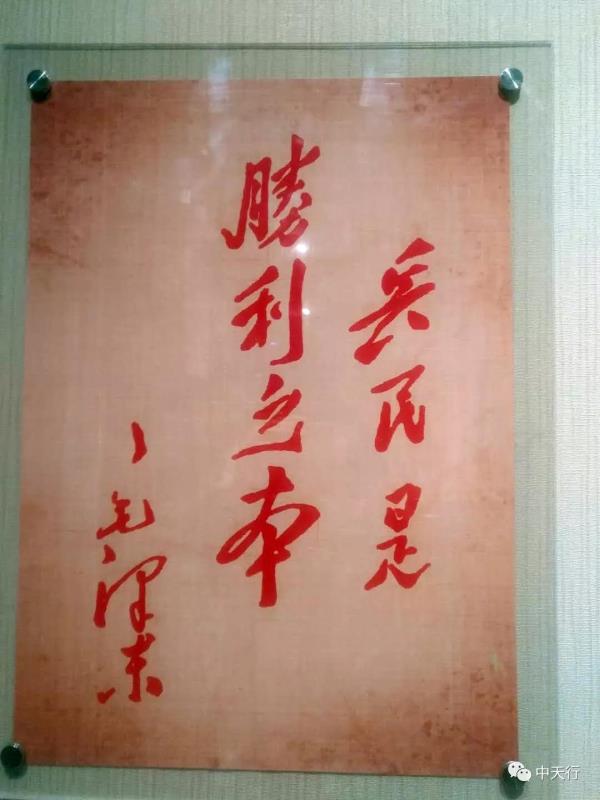 兵民是
勝利之本
毛澤東
中天行